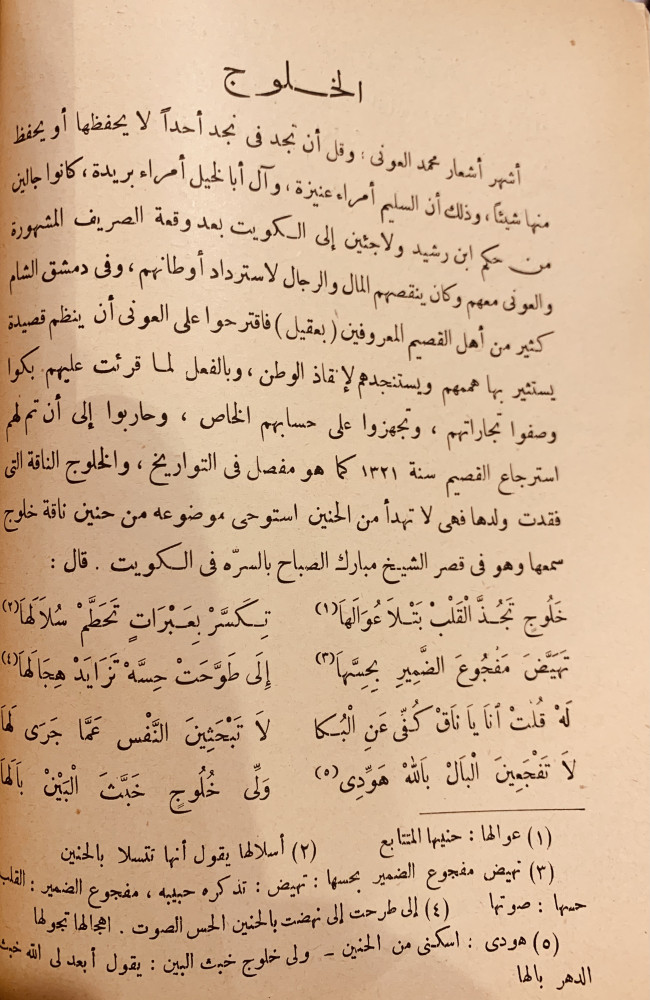 الخلوج
أشهر أشعار محمد العونى : وقل أن تجد فى نجد أحداً لا يحفظها أو يحفظ
منها شيئاً ، وذلك أن السليم أمراء عنيزة ، وآل أبا الخيل أمراء بريدة ، كانوا جالين
من حكم ابن رشيد ولاجئين إلى الكويت بعد وقعة الصريف المشهورة
والعونى معهم وكان ينقصهم المال والرجال لاسترداد أوطانهم ، وفى دمشق الشام
كثير من أهل القصيم المعروفين ( بعقيل ) فاقترحوا على العونى أن ينظم قصيدة
يستثير بها هممهم ويستنجدهم لإنقاذ الوطن ، وبالفعل لما قرئت عليهم بكوا
وصفوا تجاراتهم ، وتجهزوا على حسابهم الخاص ، وحاربوا إلى أن تم لهم
استرجاع القصيم سنة ١٣٢١ كما هو مفصل فى التواريخ ، والخلوج الناقة التى
فقدت ولدها فهى لا تهدأ من الحنين استوحى موضوعه من حنين ناقة خلوج
سمعها وهو فى قصر الشيخ مبارك الصباح بالسرّه فى الكويت . قال :
خَلُوجٍ تَجُذَّ الْقَلْبْ بَتْلاَ عُوَالَهاَ(١) تِكَسَّرْ بِعَبْرَاتٍ تَحَطَّمْ سُلاَلَهاَ(٢)
تَهَيَّضَ مَفْجُوعَ الضَّمِيرِ بِحِسَّهاَ(٣) إِلَى طَوَّحَتْ حِسَّهْ تَزَايَدْ هِجَالَهاَ(٤)
لَهْ قُلتْ أَناَ ياَ ناَقْ كُفّى عَنِ الْبُكا لاَ تَبْحَثِينَ النَّفْس عَمَّا جَرَى لَهاَ
لاَ تَفْجَعِينَ الْبَالْ باَللهْ هَوِّدِى(٥) وَلِّى خُلُوجٍ خَبَّثَ الْبَيْنْ باَلَهاَ
(١) عوالها : حنينها المتتابع (٢) أسلالها يقول أنها تتسلا بالحنين
(٣) تهيض مفجوع الضمير بحسها : تهيض : تذكره حبيبه ، مفجوع الضمير : القلب
حسها : صوتها (٤) إلى طرحت إلى نهضت بالحنين الحس الصوت . اهجالها تجولها
(٥) هودى : اسكنى من الحنين – ولى خلوج خبث البين : يقول أبعد لى الله خبث
الدهر بالها